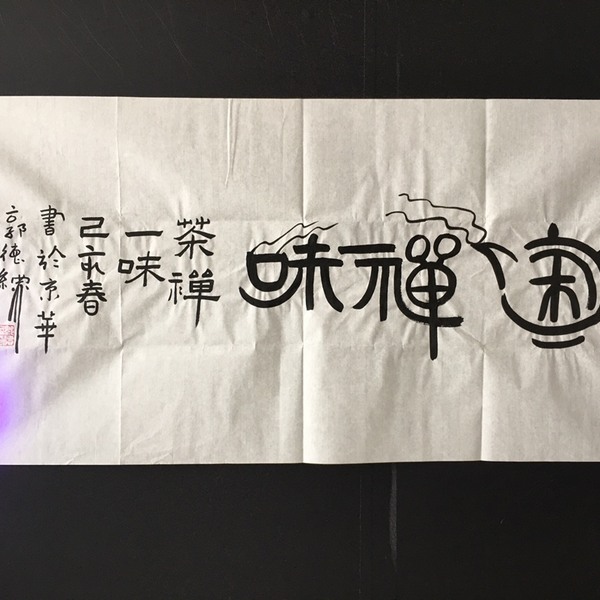 茶禪一味
茶禪
一味
己亥春
書於京華
郭德